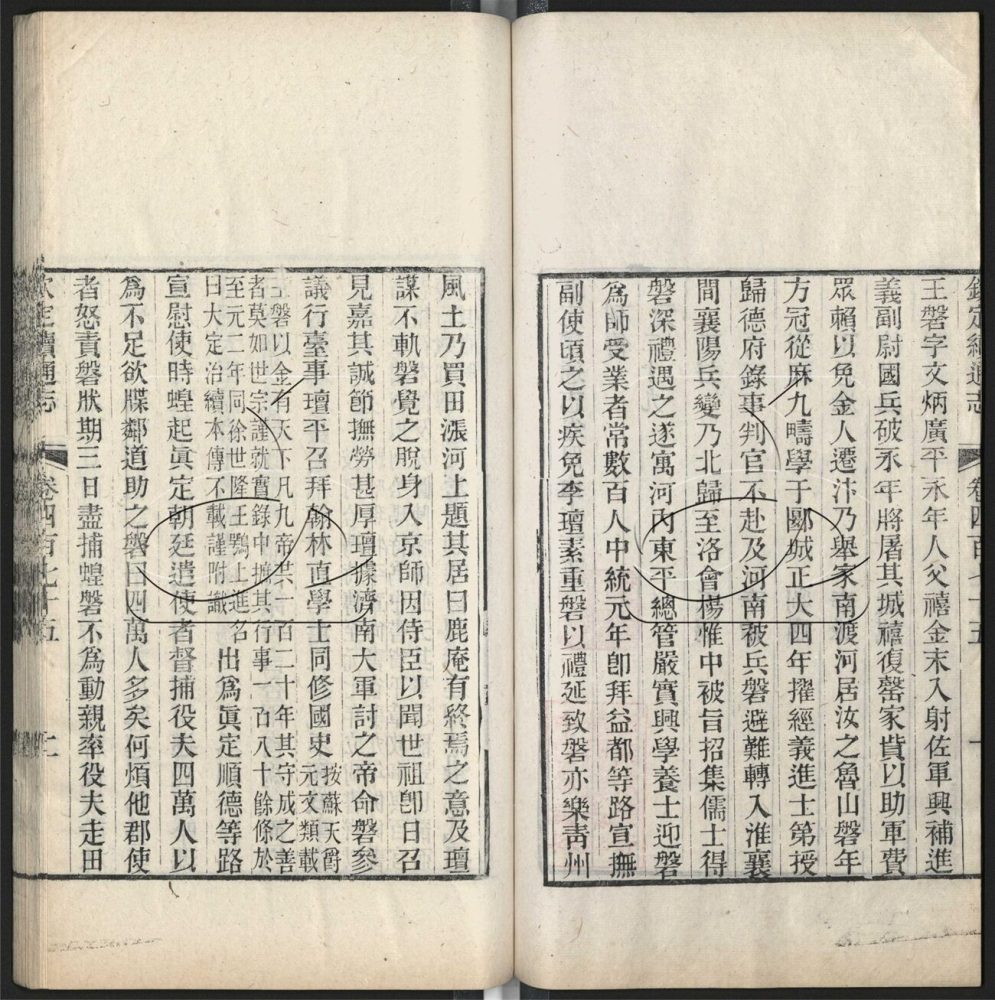 欽定續通志 卷四百七十五 一
王磐字文炳廣平永年人父禧金末入射佐軍興補進
義副尉國兵破永年將屠其城禧復罄家貲以助軍費
眾賴以免金人遷汴乃舉家南渡河居汝之魯山磐年
方冠從麻九疇學于郾城正大四年擢經義進士第授
歸德府錄事判官不赴及河南被兵磐避難轉入淮襄
間襄陽兵變乃北歸至洛會楊惟中被旨招集儒士得
磐深禮遇之遂寓河內東平總管嚴實興學養士迎磐
為師受業者常數百人中統元年卽拜益都等路宣撫
副使頃之以疾免李璮素重磐以禮延致磐亦樂靑州
風土乃買田漲河上題其居曰鹿庵有終焉之意及璮
謀不軌磐覺之脫身入京師因侍臣以聞世祖卽日召
見嘉其誠節撫勞甚厚璮據濟南大軍討之帝命磐參
議行臺事璮平召拜翰林直學士同修國史
按蘇天爵
元文類載
王磐以金有天下凡九帝共一百二十年其守成之善
者莫如世宗謹就實錄中摭其行事一百八十餘條於
至元二年同徐世隆王鶚上進名
曰大定治績本傳不載謹附識
出為眞定順德等路
宣慰使時蝗起眞定朝廷遣使者督捕役夫四萬人以
為不足欲牒鄰道助之磐曰四萬人多矣何煩他郡使
者怒責磐狀期三日盡捕蝗磐不為動親率役夫走田
欽定續通志 卷四百七十五 二